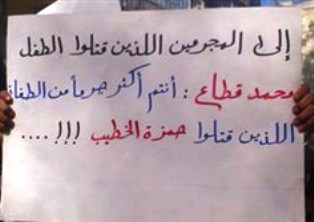 إلى المجرمين اللذين قتلوا الطفل
محمد قطاع : أنتم أكثر جرماً من الطغاة
اللذين قتلوا حمزة الخطيب !!! ....